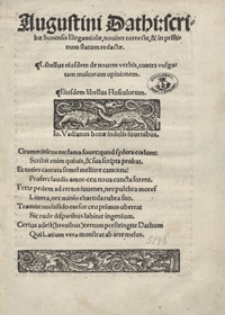 Augustini Dathi: scri-
bæ Senensis Elegantiolæ, nouiter correctæ, & in pristi-
num statum redactæ.
¶ Libellus eiusdem de nouem verbis, contra vulga-
tam multorum opinionem.
¶ Eiusdem libellus Flosculorum.
Io. Vadianus bonæ indolis iuuenibus.
Grammatistarum fama
Scribit enim quiuis, & sua scripta probat.
Et toties cantata semel meliore camœna:
Præfert laudis amor: ceu noua cuncta forent.
Ferte pedem ad certos iuuenes, nec pulchra moret
Litera, nec minio charta rubra sito.
Tramite multifido cursor ceu primus oberrat
Sic rude disparibus labitur ingenium.
Certus adest (breuibus) certum perstringite Dathum
Qui Latium vera monstrat ab arte melos.